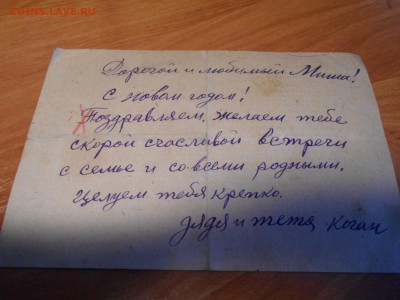 COINS.LAVE.RU
Дорогой и любимый Миша!
С новым годом!
Поздравляем, желаем тебе
скорой счасливой встречи
с семье и со всеми родными.
Целуем тебя крепко.
дядя и тетя Коган